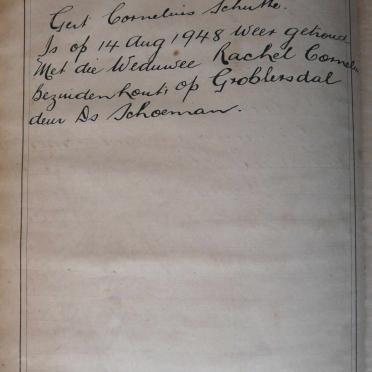 Gert Cornelius Schutte.
Is op 14 Aug 1948 Weer getroud
Met die Weduwee Rachel Cornelia
Bezuidenhout, op Groblersdal
deur Ds Schoeman.